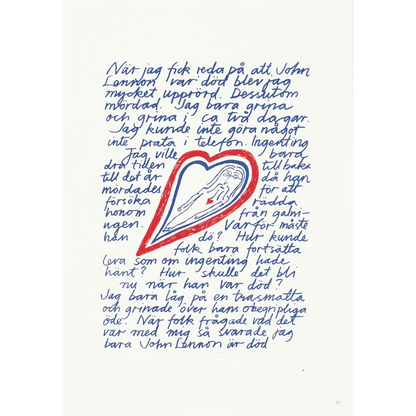 När jag fick reda på att John
Lennon var död blev jag
mycket upprörd. Dessutom
mördad. Jag bara grina
och grina i ca två dagar.
Jag kunde inte göra något
inte prata i telefon. Ingenting
Jag ville bara
dra tiden tillbaka
till det år då han
mördades för att
försöka rädda
honom från galni-
ngen. Varför måste
han dö? Hur kunde
folk bara fortsätta
leva som om ingenting hade
hänt? Hur skulle det bli
nu när han var död?
Jag bara låg på en trasmatta
och grinade över hans obegripliga
öde. När folk frågade vad det
var med mig så svarade jag
bara John Lennon är död